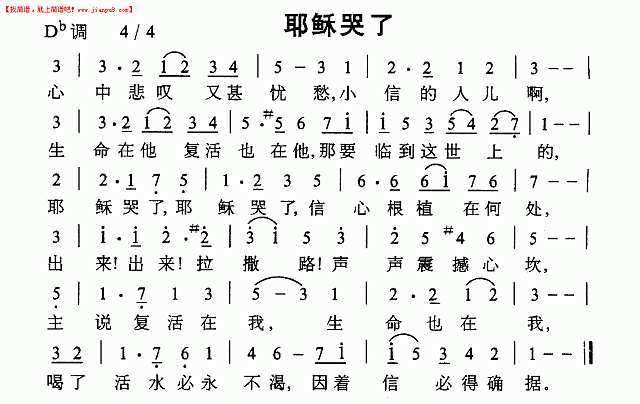 【找简谱，就上简谱吧！www.jianpu8.com】
耶稣哭了
D♭调 4/4
3 | 3·2 1 2 3 4 | 5 - 3 1 | 2·2 1 2 | 3 - -
心 中悲叹 又甚 忧 愁,小 信的人儿 啊,
3 | 3·2 1 2 3 4 | 5·#5 6 7 i | i 5 3 5 4 2 7 | 1 - -
生 命在他 复活 也在他,那要 临到这世 上 的,
2 | 2·1 7 5 | 1·7 1 2 3 | 6·6 6 i 7 6 | 7 - -
耶 稣哭了,耶 稣哭了,信 心根植 在何 处,
3 | i·i 2·#2 | 3 i 5 3 | 2 5 #4 6 | 5 - -
出 来!出来!拉 撒 路!声 声震撼心 坎,
5 | 1·7 1 3 | 5 - 3 1 | 2·3 4 1 2 | 3 - -
主 说复活在 我, 生 命也在 我,
3 2 | 1·7 5 5 | 4 6 - 7 i | i 5 3 4 2 | 1 - -
喝了 活水必永 不渴,因着 信 必得确 据。